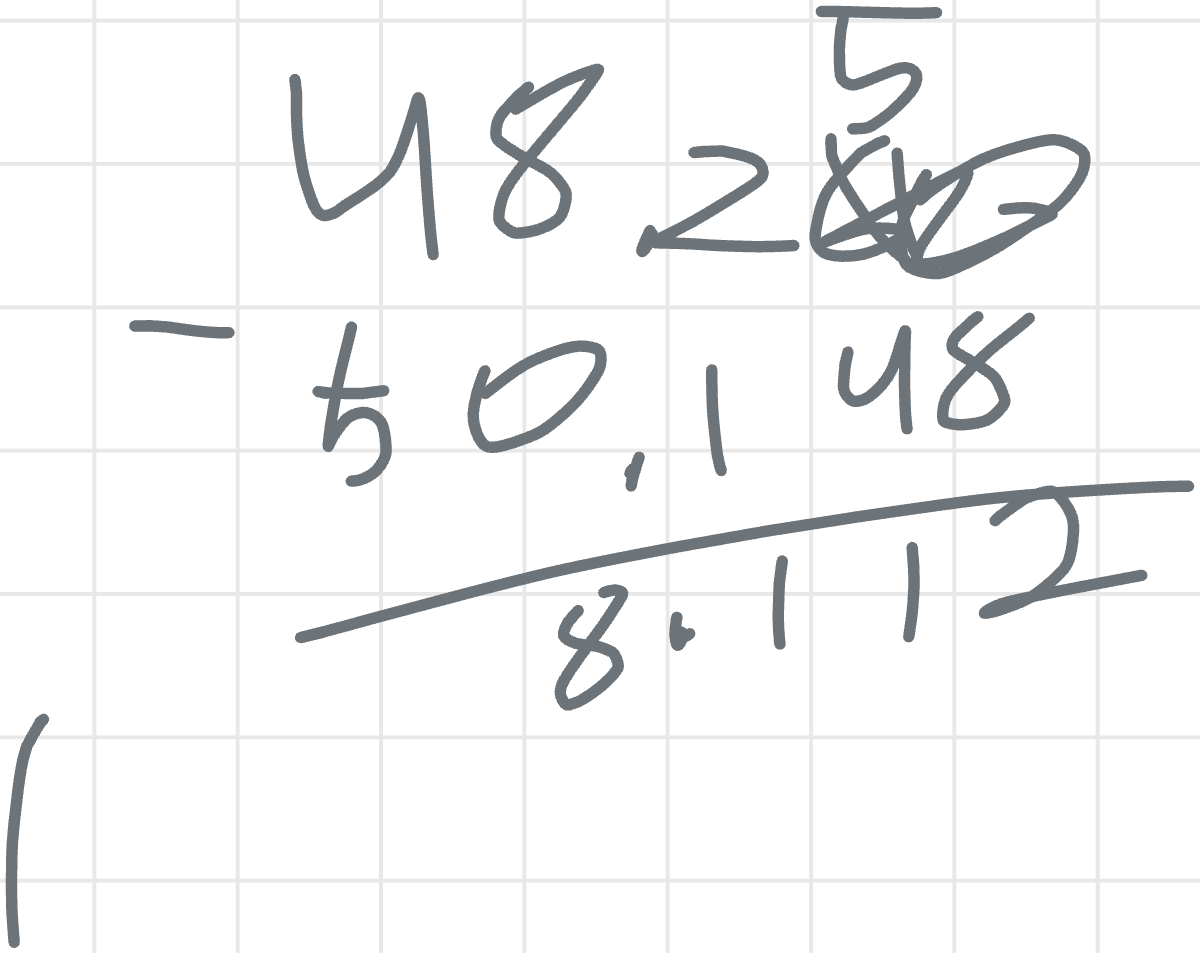 5
48.2
- 50.148
8.112